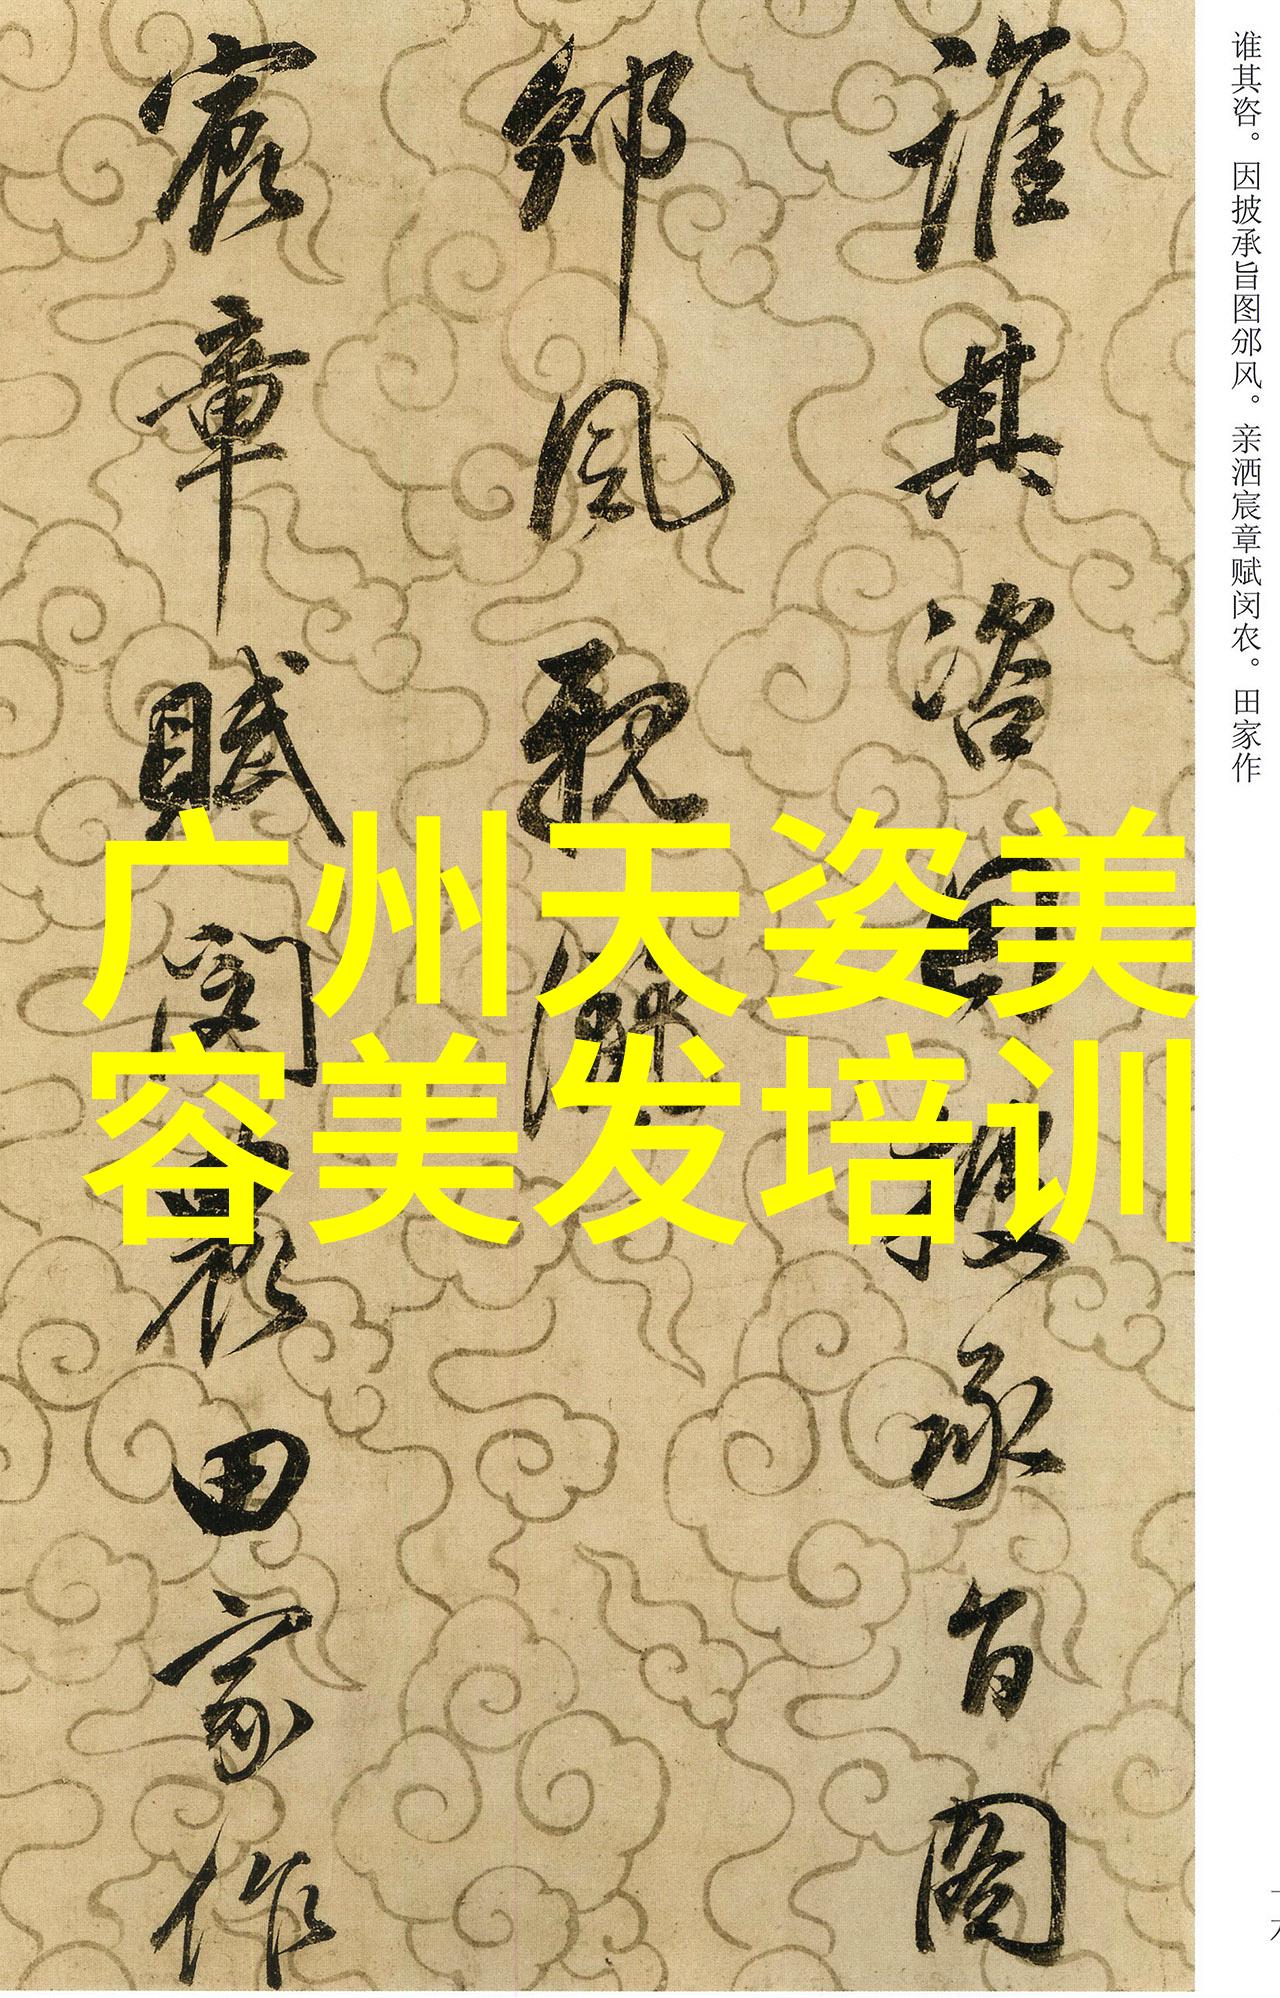 谁其咨。因披承旨图邠风。亲洒宸章赋闵农。田家作
誰其咨因披承旨圖
邠風親灑
宸章賦閔農田家作
广州天姿美
容美发培训